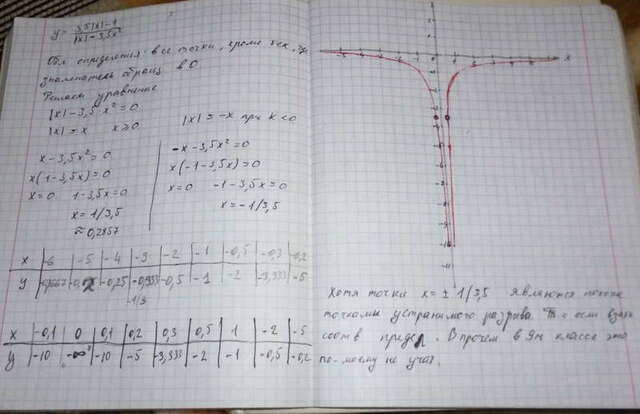 y = (3,5|x| - 1)/(|x| - 3,5x²)
Обл определения: все точки, кроме тех, где
знаменатель обращ. в 0
Решаем уравнение
|x| - 3,5 x² = 0
|x| = x x ≥ 0 |x| = -x при x < 0
x - 3,5x² = 0
x(1 - 3,5x) = 0
x = 0 1 - 3,5x = 0
x = 1/3,5
≈ 0,2857
-x - 3,5x² = 0
x(-1 - 3,5x) = 0
x = 0 -1 - 3,5x = 0
x = -1/3,5
x | -6 | -5 | -4 | -3 | -2 | -1 | -0,5 | -0,3 | -0,2
y | -0,1667 | -0,2 | -0,25 | -0,333 | -0,5 | -1 | -2 | -3,333 | -5
-1/3
x | -0,1 | 0 | 0,1 | 0,2 | 0,3 | 0,5 | 1 | -2 | -5
y | -10 | -∞ | -10 | -5 | -3,333 | -2 | -1 | -0,5 | -0,2
x
Хотя точки x = ± 1/3,5 являются
точками устранимого разрыва. Т. е если взять
соотв предел. Впрочем в 9м классе это
по-моему не учат.